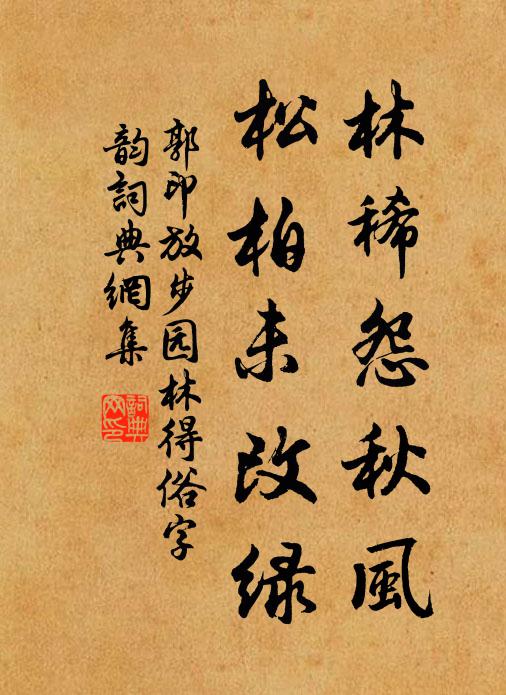 林稀怨秋風
松柏未改绿
郭印放步园林得俗字
韵詞典網集
詞典網印